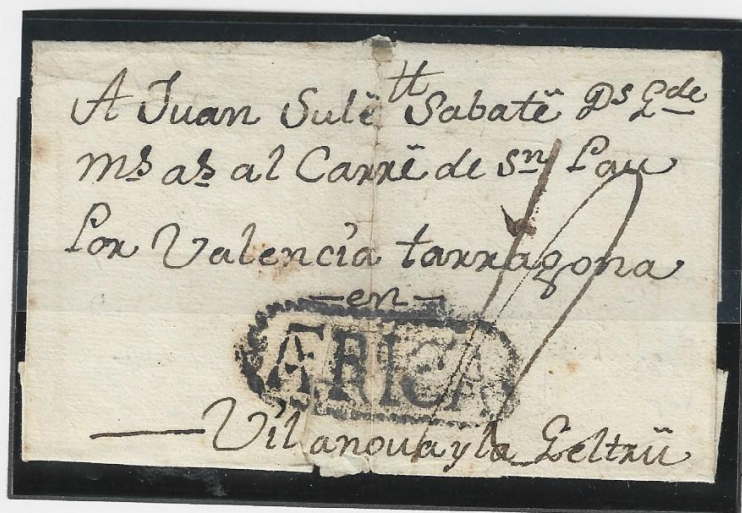 A Juan Sulē tt Sabatē Ds Gde
ms as al Carrē de Sn Pau
Por Valencia tarragona
en
ARICA
Vilanova y la Geltrū